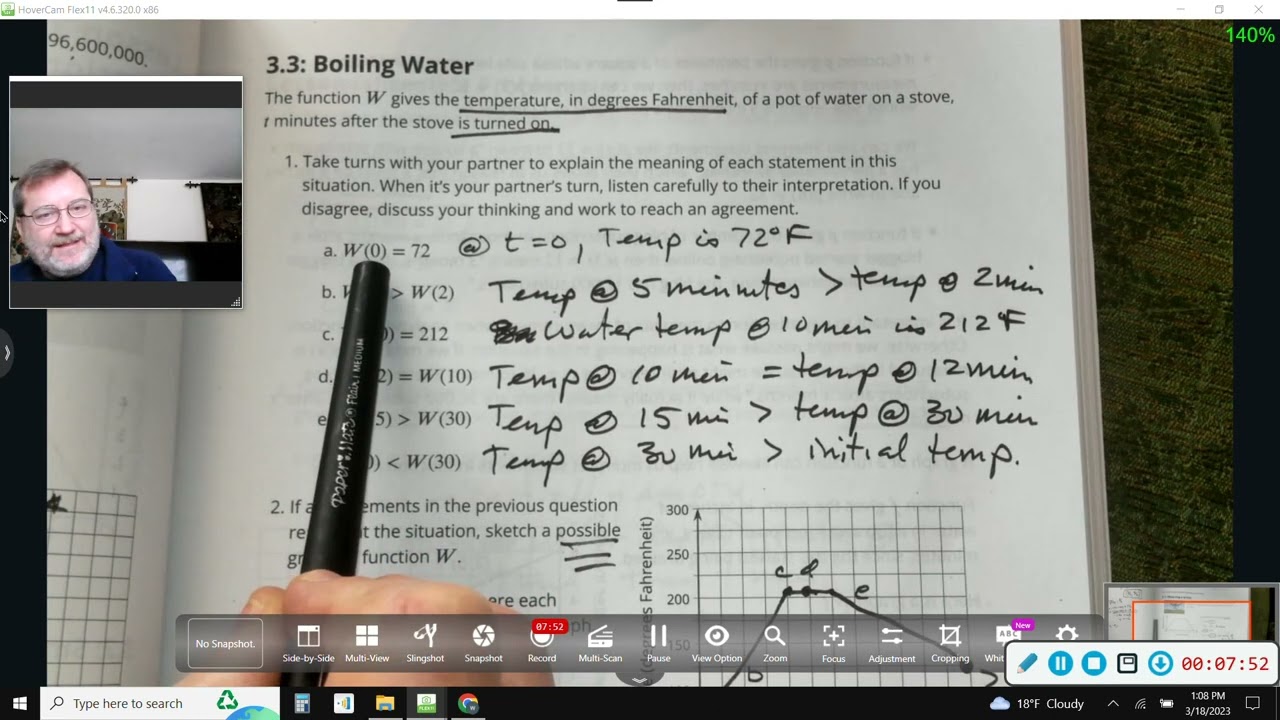 HoverCam Flex11 v4.6.320.0 x86
140%
96,600,000.
3.3: Boiling Water
The function W gives the temperature, in degrees Fahrenheit, of a pot of water on a stove,
t minutes after the stove is turned on.
1. Take turns with your partner to explain the meaning of each statement in this
situation. When it's your partner's turn, listen carefully to their interpretation. If you
disagree, discuss your thinking and work to reach an agreement.
a. W(0) = 72 @ t=0, Temp is 72°F
b. > W(2) Temp @ 5 minutes > temp @ 2min
c. ) = 212 Water temp @ 10min is 212°F
d. 2) = W(10) Temp @ 10 min = temp @ 12min
e 5) > W(30) Temp @ 15 min > temp @ 30 min
) < W(30) Temp @ 30 min > initial temp.
2. If a ements in the previous question
re t the situation, sketch a possible
gr function W.
ere each
ph
(degrees Fahrenheit)
300
250
200
150
c d e
b
PaperMate Flair! MEDIUM
No Snapshot.
Side-by-Side
Multi-View
Slingshot
Snapshot
07:52
Record
Multi-Scan
Pause
View Option
Zoom
Focus
Adjustment
Cropping
New
ABC
Whit
00:07:52
Type here to search
FLEX11
18°F Cloudy
1:08 PM
3/18/2023